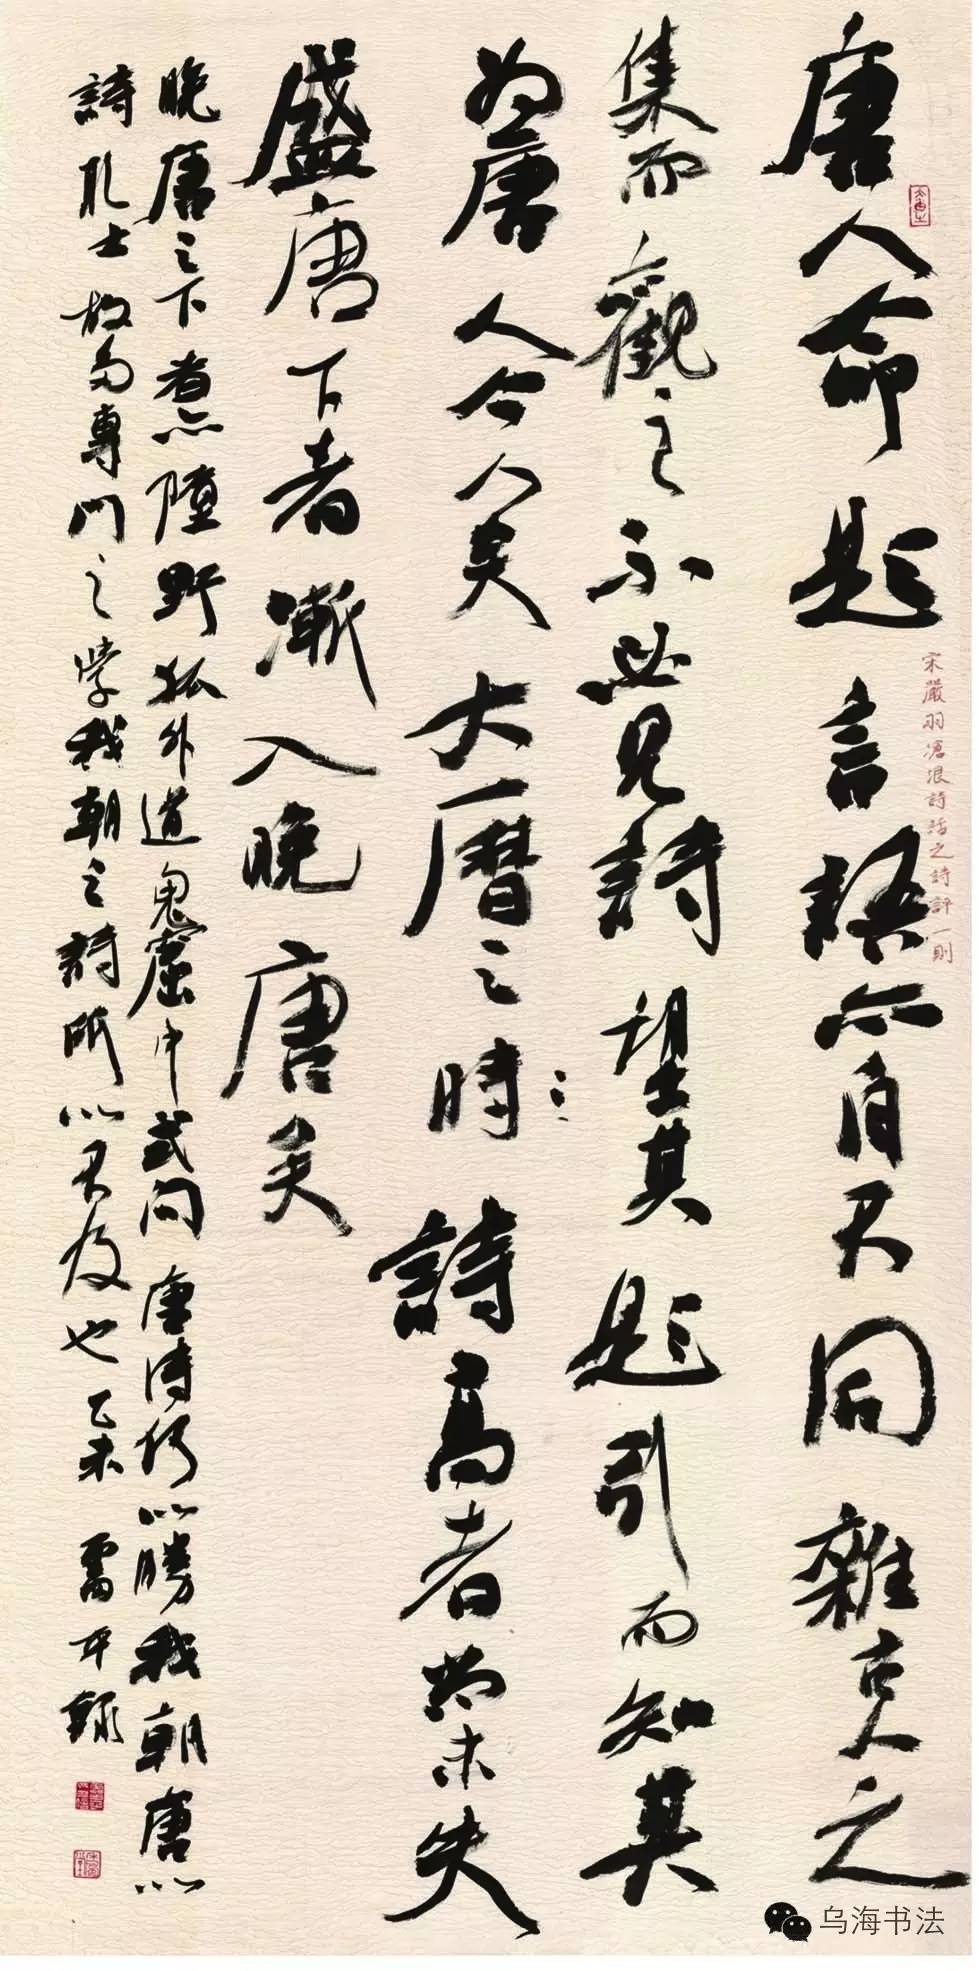 唐人命題言語亦自不同雜古人之
宋嚴羽滄浪詩話之詩評一則
集而觀之不必見詩望其題引而知其
為唐人今人矣大曆之時詩高者尚未失
盛唐下者漸入晚唐矣
晚唐之下者亦墮野狐外道鬼窟中或問唐詩何以勝我朝唐以
詩取士故多專門之學我朝之詩所以不及也乙未雷平錄
乌海书法